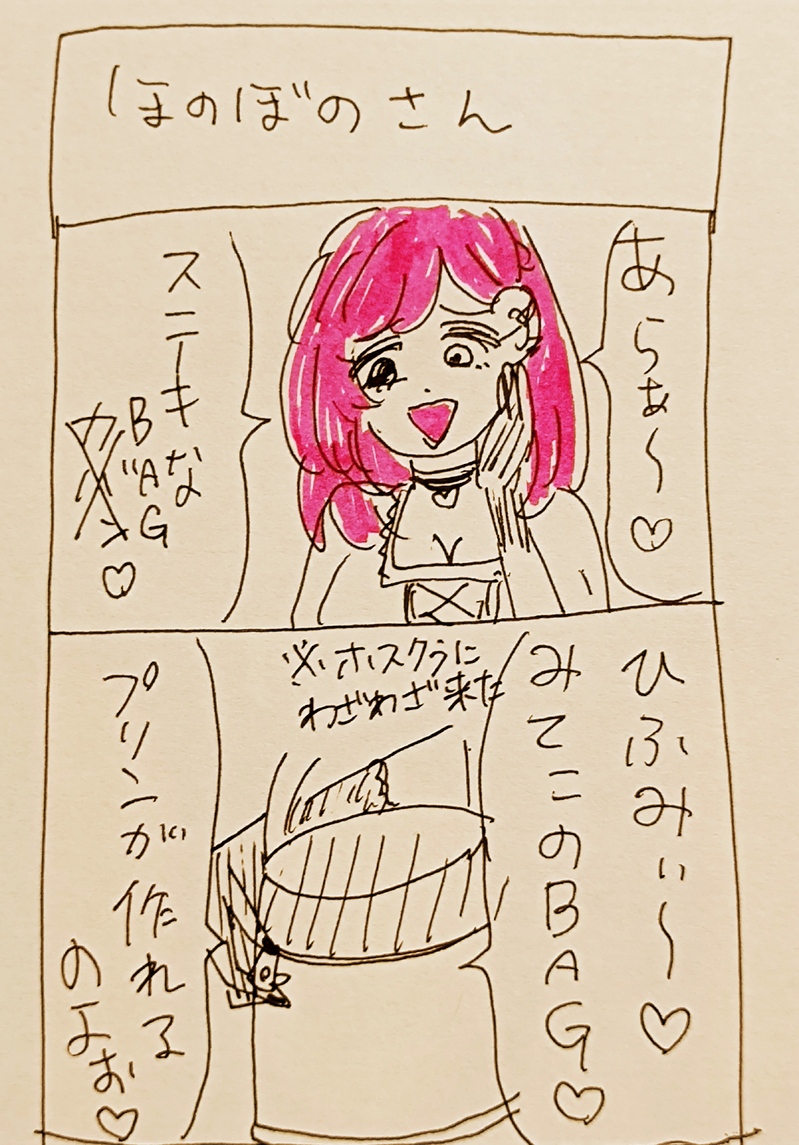 ほのぼのさん
あらぁ〜♡
スニーキな
BAG♡
ひふみぃ〜♡
みてこの
BAG♡
※ホスクラに
わざわざ来た
プリンが作れる
のよお♡